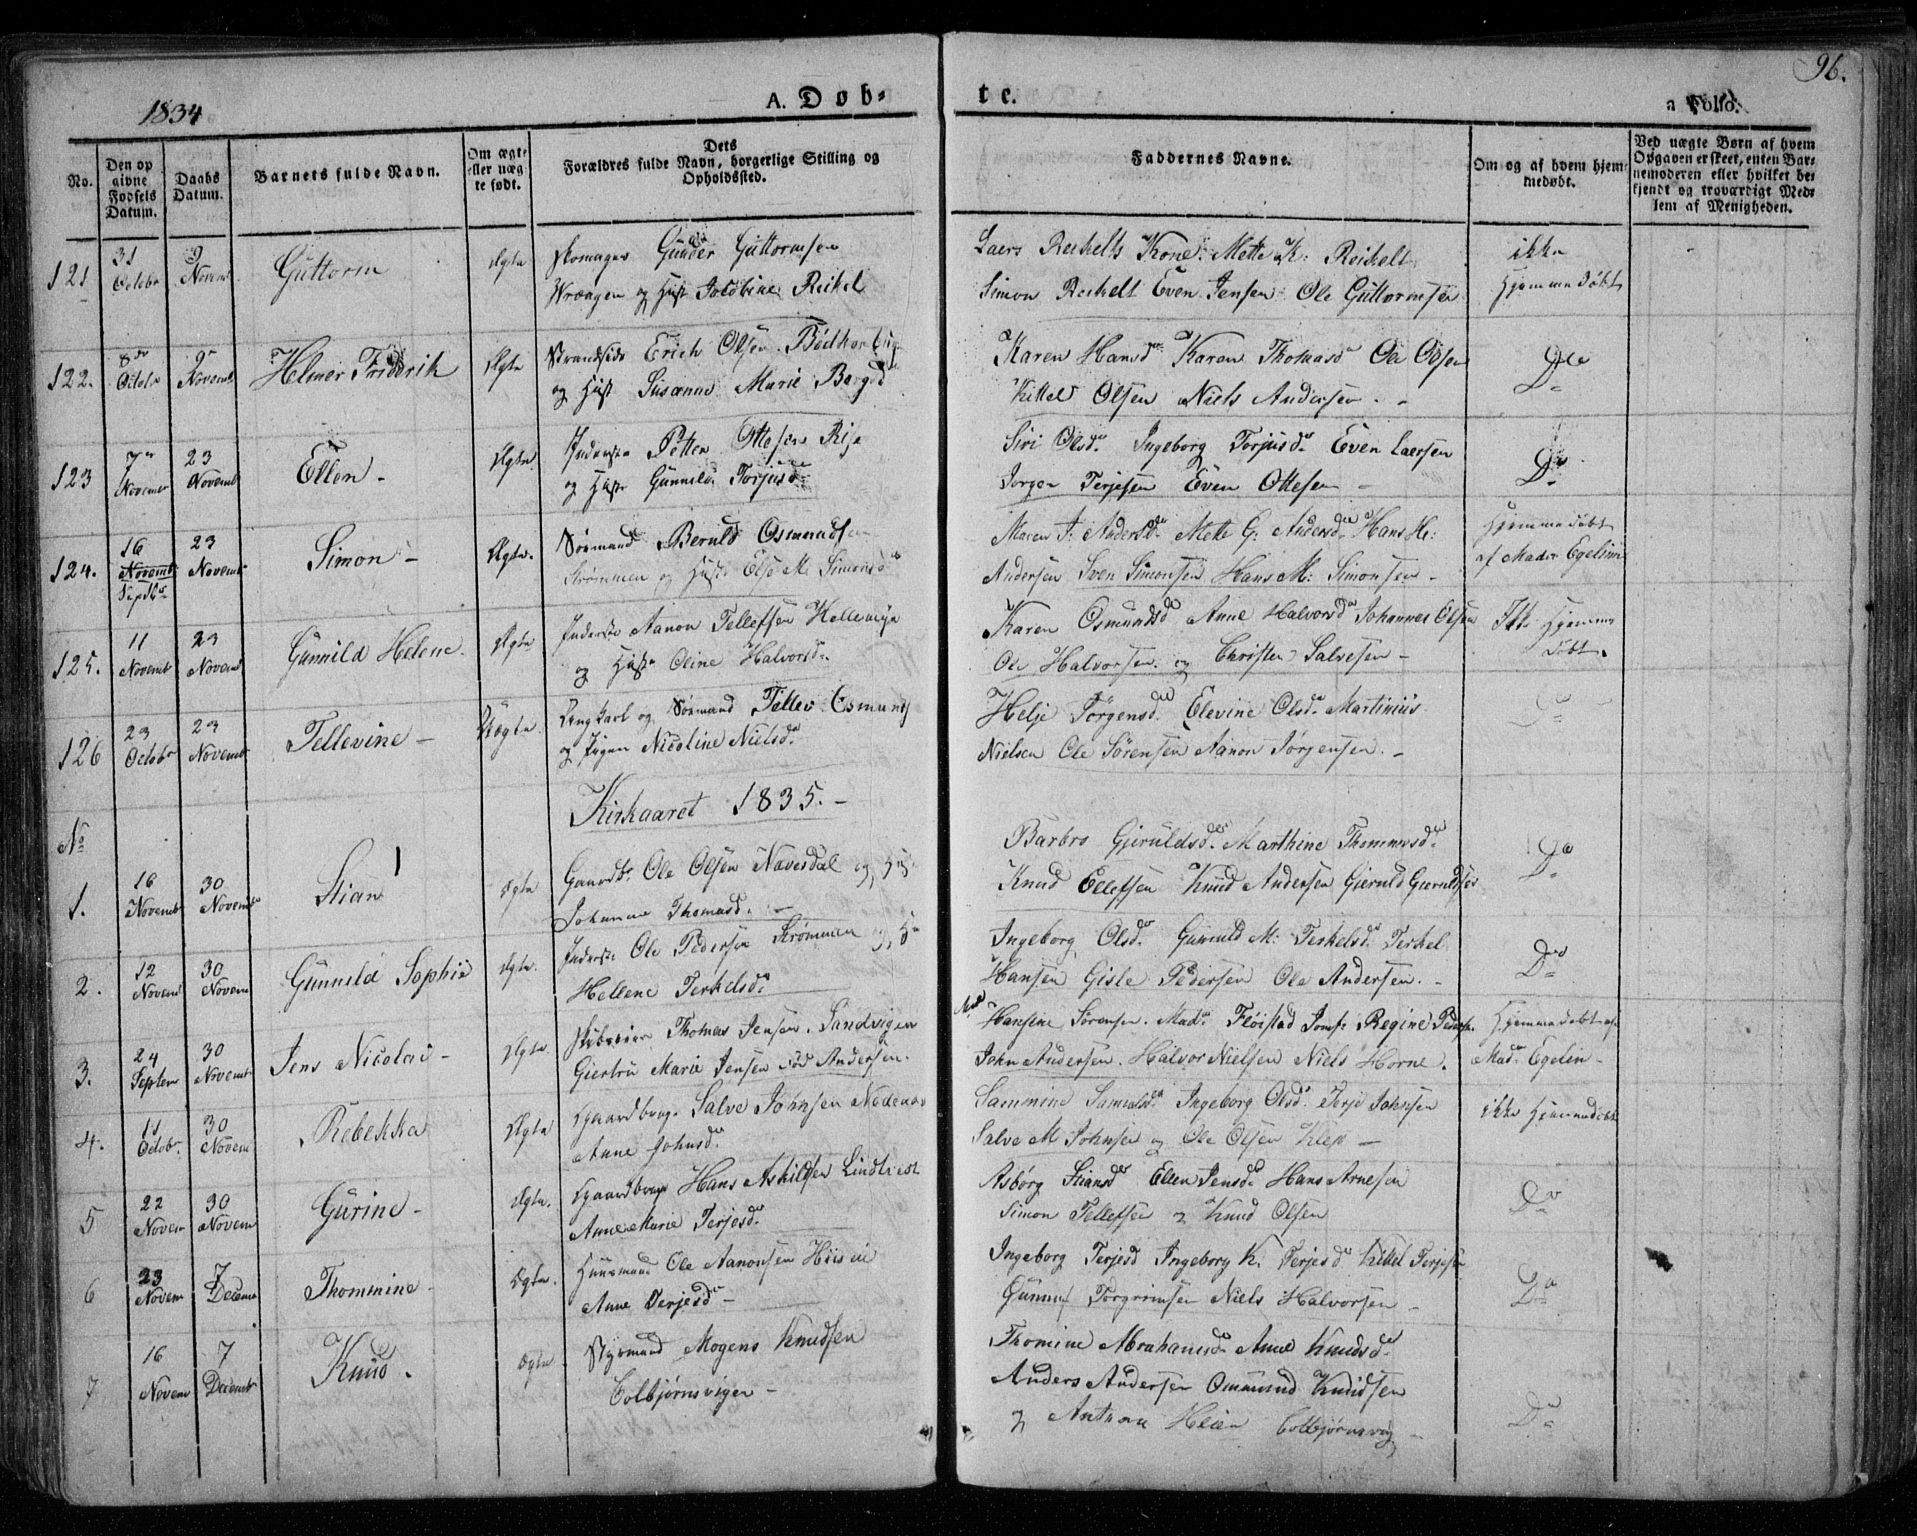 1834
A. Døb-
te.
96.
a Folio.
No.
Den op
givne
Fødsels
Datum.
Daabs
Datum.
Barnets fulde Navn.
Om ægte
eller uæg-
te født.
Dets
Forældres fulde Navn, borgerlige Stilling og
Opholdssted.
Faddernes Navne.
Om og af hvem hjem-
medøbt.
Ved uægte Børn af hvem
Opgaven er skeet, enten Bar-
nemoderen eller hvilket be-
kjendt og troværdigt Med-
lem af Menigheden.
121
31
Octobr
9
Novemb
Guttorm
Ægte
Skomager Gunder Guttormsen
og Hust Reikel
Laers Reikelts Kone: Mette K: Reikelt
Simon Reikelt Even Jensen Ole Guttormsen
ikke
Hjemmedøbt
122.
8de
Octobr
9de
Novemb
Helmer Fridrik
Ægte
Strandsidr Erich Olsen
og Hust Susanne Marie
Karen Hansd Karen Thomasd Ole Olsen
Kittel Olsen Niels Andersen
Do
123
7de
Novembr
23
Novemb
Ellen
Ægte
Inderste Petter Ottosen Rise
og Hust Gunnild Torjusd
Siri Olsd Ingeborg Torjusd. Even Laersen
Jørgen Terjesen Even Ottesen
Do
124.
16
Novemb
Septbr
23
Novemb
Simon
Ægte.
Sømand Beruld Osmundsen
Strømmen og Hust Else M. Simonsd
Maren J: Andersd. Mette G: Andersd. Hans H:
Andersen Sven Simonsen Hans M: Simonsen
Hjemmedøbt
af Mader Egelim
125.
11
Novemb
23
Novemb
Gunnild Helene
Ægte
Inderste Aanon Tellefsen Hellemyr
og Hust Oline Halvorsd.
Karen Osmundsd Anne Halvorsd Johannes Olsen
Ole Halvorsen. og Christen Salvesen
Ikke Hjemme
døbt.
126
23
Octobr
23
Novemb
Tellevine
Uægte.
Ungkarl og Sømand Tellev Osmunds
og Pigen Nicoline Nielsd.
Helje Jørgensd. Elevine Olsd. Martinius
Nielsen Ole Sørensen Aanon Jørgensen.
Do
Kirkaaret 1835.
No
1.
16
Novemb
30
Novemb
Stian
Ægte
Gaardb. Ole Olsen Navesdal og Hus
Johanne Thomasd.
Barbro Gjeruldsd. Marthine Thommasd.
Knud Ellefsen Knud Andersen Gjeruld Gjeruldsen
Do
2.
12
Novemb
30
Novem
Gunnild Sophie
Ægte.
Inderste Ole Pedersen Strømmen og H
Hellene Terkelsd.
Ingeborg Olsd. Gunnuld M: Terkelsd. Terkel
Hansen Gisle Pedersen Ole Andersen.
Do
3.
24
Septem
30
Novemb
Jens Nicolai
Ægte
Thomas Jensen. Sandvigen
Giertru Marie Jensen fød Andersen.
Mad
Hansine Sørensen. Mad. Fløistad Jomf. Regine Peders.
John Andersen. Halvor Nielsen Niels Horne.
Hjemmedøbt af
Mad. Egelin
4.
11
Octobr.
30
Novem
Rebekka
Ægte
Gaardbrug. Salve Johnsen
Anne Johnsd.
Sammine Samuelsd. Ingeborg Olsd. Terje Johnsen
Salve M. Johnsen og Ole Olsen Klep
ikke Hjemmedøbt
5
22
Novem
30
Novem
Gurine
Ægte.
Gaardbrug Hans Askilsen Lindtveit
Anne Marie Terjesd.
Asbørg Stiansd Ellen Jensd. Hans Arnesen
Simon Tellefsen og Knud Olsen
Do
6
23
Novem
7
Decem
Thommine
Ægte.
Huusmand Ole Aanonsen
Anne Terjesd
Ingeborg Terjesd Ingeborg K. Terjesd Kittel Terjesen
Gunnuf Torgrimsen Niels Halvorsen
Do
7
16
Novem
7
Decemb
Knud.
Ægte
Styrmand Mogens Knudsen
Colbjørnsvigen
Thomine Abrahamsd Anne Knudsd.
Anders Andersen Ommund Knudsen
og Anthon Heien Colbjørnsvig
Do